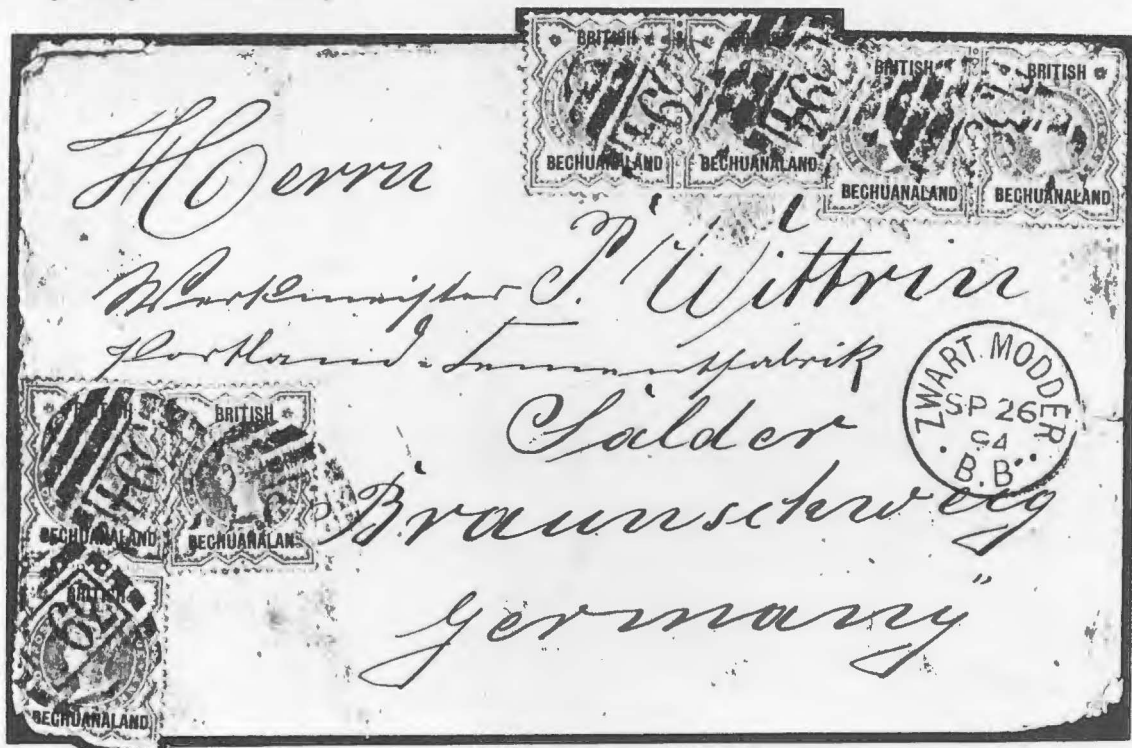 BRITISH
BECHUANALAND
BECHUANALAND
BRITISH
BECHUANALAND
BRITISH
BECHUANALAND
Herrn
Werkmeister P. Wittrin
Portland-Cementfabrik
Salder
Braunschweg
Germany
ZWART MODDER
SP 26
94
B.B.
BRITISH
BECHUANALAND
BRITISH
BECHUANALAN
694
BRITISH
BECHUANALAND